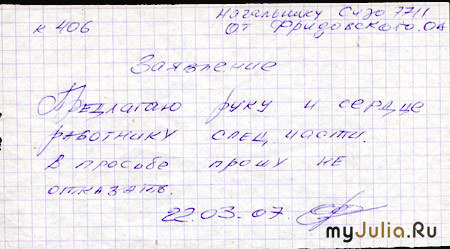 Начальнику Сизо 77/1
к 406 От Фридовского. ОА
Заявление
Предлагаю руку и сердце
работнику спец части.
В просьбе прошу не
отказать.
22.03.07.
myJulia.Ru